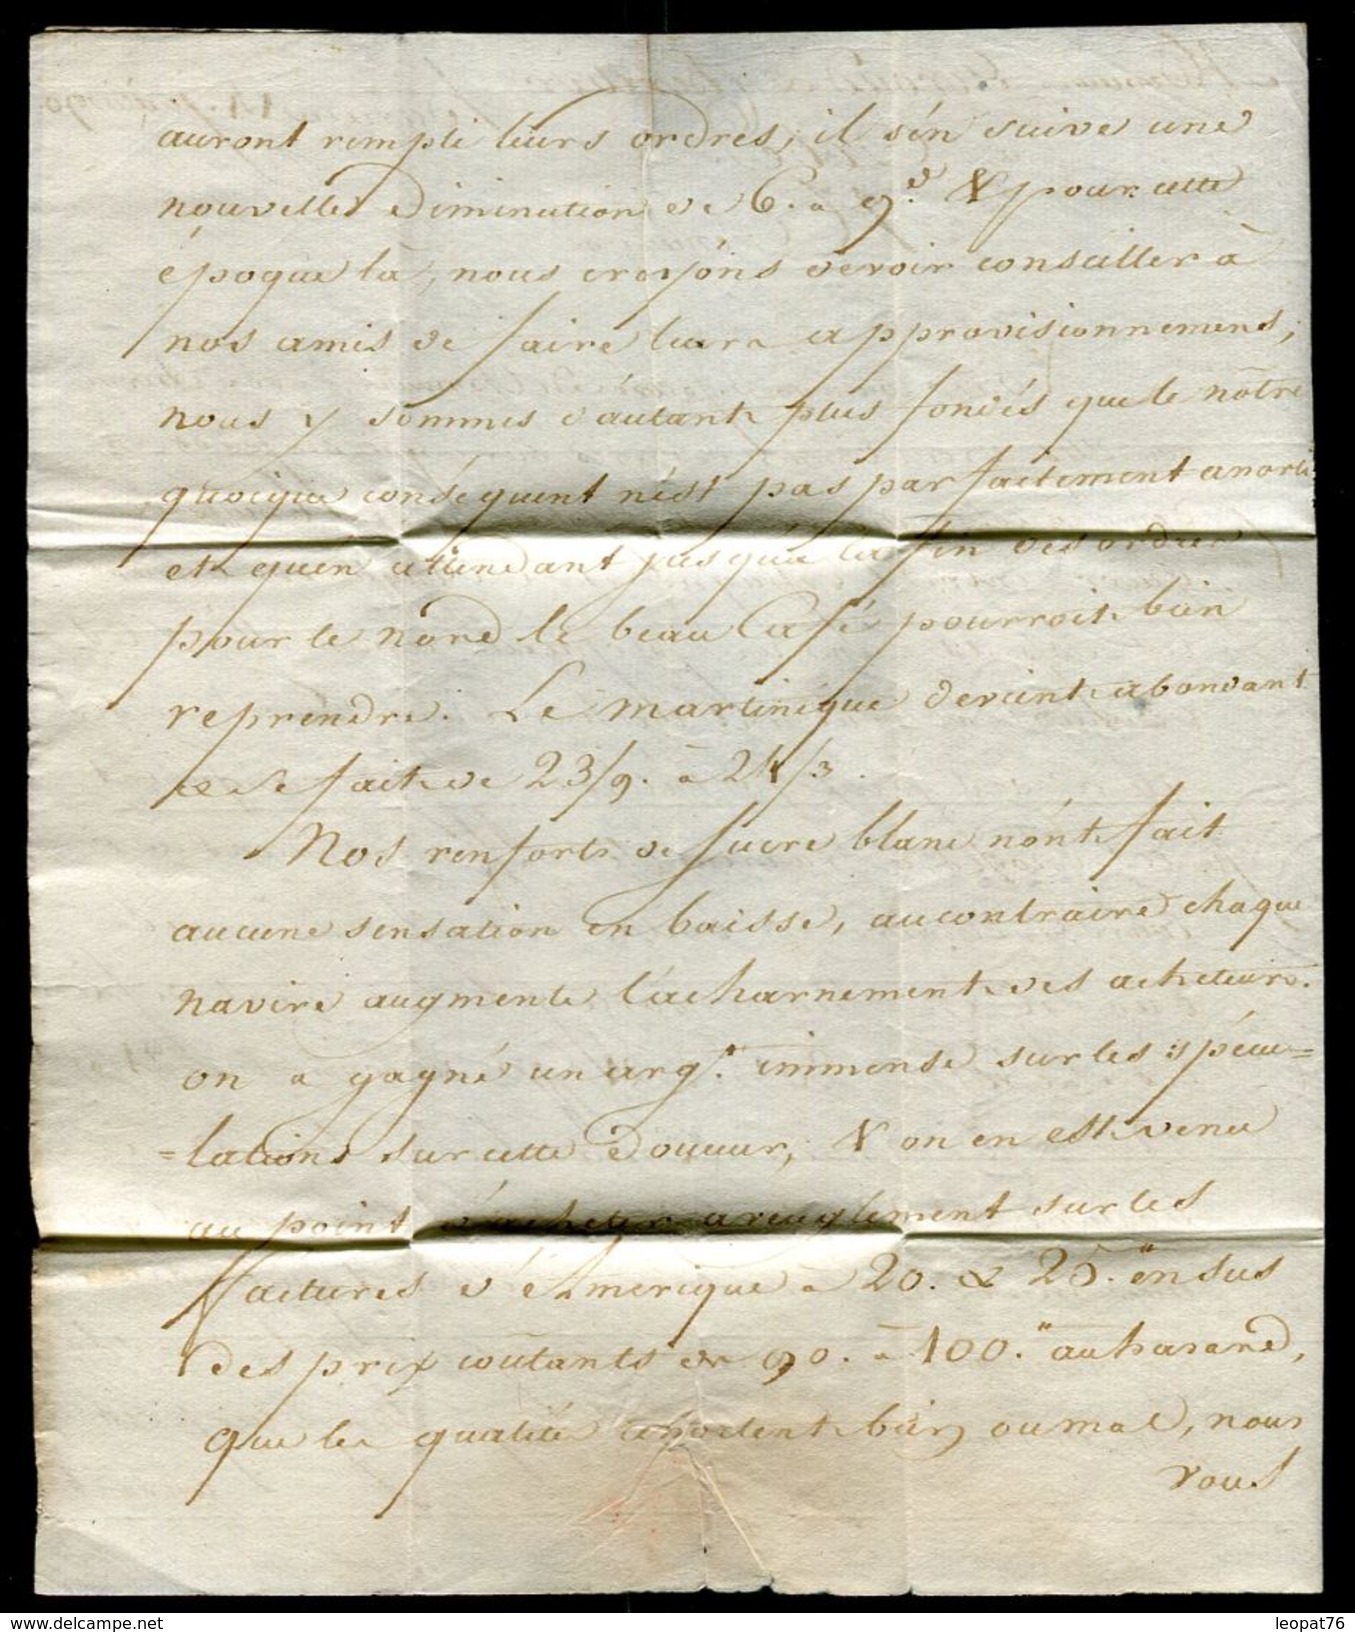 auront rempli leurs ordres, il s'én suive une
nouvelle diminution de 6. a 9.d & pour cette
époque là, nous croyóns devoir conseiller à
nos amis de faire leurs approvisionnemens,
nous y sommes d'autant plus fondés que le nôtre
quoique conséquent n'ést pas parfaitement anorti
et qu'én attendant jusqu'a la fin des ordres
pour le nord le beau Café pourroit bien
reprendre. Le Martinique devient abondant
se fait de 23/9. à 24/3.
Nos renforts de sucre blanc n'ónt fait
aucune sensation en baisse, au contraire chaque
navire augmente l'acharnement des acheteurs.
on a gagné un arg.t immense sur les spécu=
=lations sur cette douceur, & on en est venu
au point d'acheter aveuglement sur les
factures d'Amerique à 20. & 25." en sus
des prix coûtants de 90. à 100." au hazard,
que les qualité se portent bien ou mal, nous
vous
leopat76
www.delcampe.net